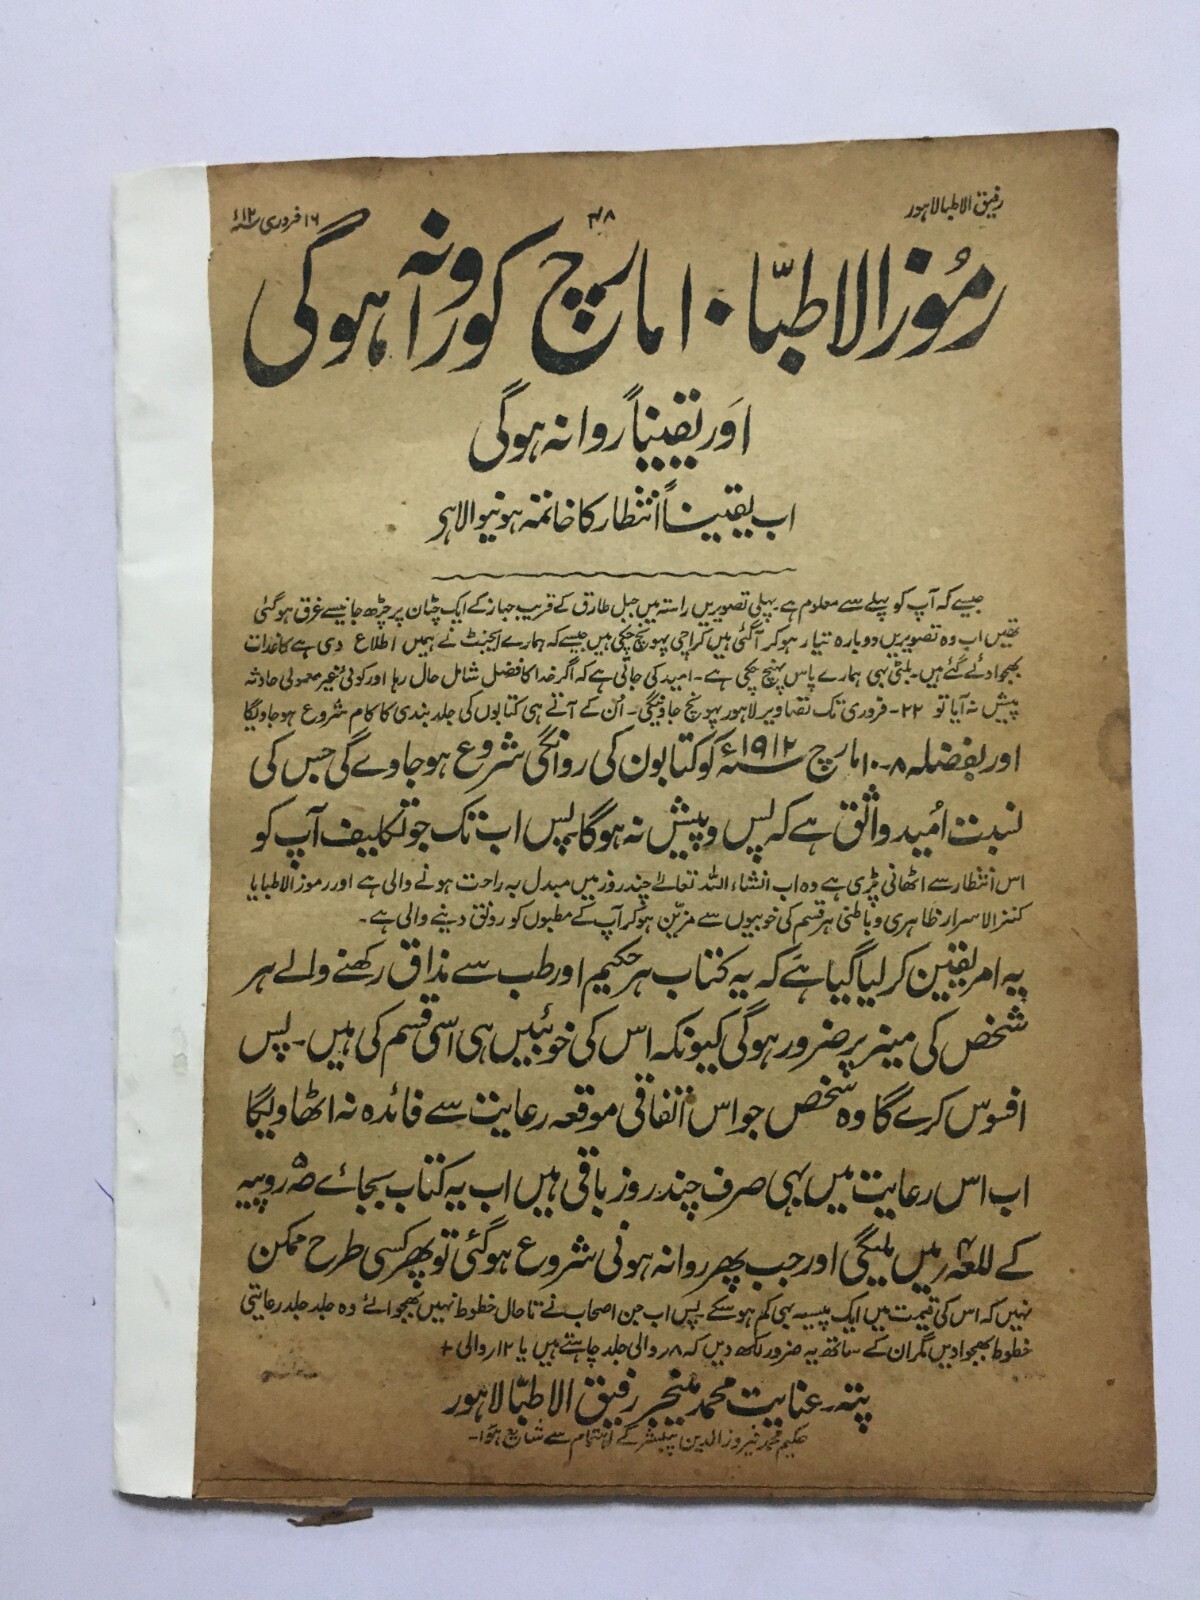 رفیق الاطبا لاہور
۴۸
۱۶ فروری ۱۲ء
رمُوز الاطبّا ۱۰ مارچ کو روانہ ہوگی
اَور یقیناً روانہ ہوگی
اب یقیناً انتظار کا خاتمہ ہونیوالا ہی
جیسے کہ آپ کو پہلے سے معلوم ہے۔ پہلی تصویریں راستہ میں جبل طارق کے قریب جہاز کے ایک چٹان پر چڑھ جانیسے غرق ہوگئی
تھیں اب وہ تصویریں دوبارہ تیار ہوکر آگئی ہیں کراچی پہونچ چکی ہیں جیسے کہ ہمارے ایجنٹ نے ہمیں اطلاع دی ہے کاغذات
بھجوا دئے گئے ہیں۔ بلٹی بھی ہمارے پاس پہنچ چکی ہے۔ امید کی جاتی ہے کہ اگر خدا کا فضل شامل حال رہا اور کوئی غیر معمولی حادثہ
پیش نہ آیا تو ۲۲۔ فروری تک تصاویر لاہور پہونچ جاوینگی۔ اُن کے آتے ہی کتابوں کی جلد بندی کا کام شروع ہو جاویگا
اور بفضلہ ۸۔۱۰ مارچ ۱۹۱۲ء کو کتابون کی روانگی شروع ہو جاوے گی جس کی
نسبت اُمید واثق ہے کہ پس و پیش نہ ہوگا پس اب تک جو تکالیف آپ کو
اس انتظار سے اٹھانی پڑی ہے وہ اب انشاء اللہ تعالےٰ چند روز میں مبدل بہ راحت ہونے والی ہے اور رموز الاطبا یا
کنز الاسرار ظاہری و باطنی ہر قسم کی خوبیوں سے مزیّن ہوکر آپ کے مطبوں کو رونق دینے والی ہے۔
یہ امر یقین کر لیا گیا ہے کہ یہ کتاب ہر حکیم اور طب سے مذاق رکھنے والے ہر
شخص کی میز پر ضرور ہوگی کیونکہ اس کی خوبئیں ہی اسی قسم کی ہیں۔ پس
افسوس کرے گا وہ شخص جو اس اتفاقی موقعہ رعایت سے فائدہ نہ اٹھاویگا
اب اس رعایت میں بھی صرف چند روز باقی ہیں اب یہ کتاب بجائے ۵ روپیہ
کے للعہ میں ملیگی اور جب پھر روانہ ہونی شروع ہوگئی تو پھر کسی طرح ممکن
نہیں کہ اس کی قیمت میں ایک پیسہ بھی کم ہوسکے۔ پس اب جن اصحاب نے تا حال خطوط نہیں بھجوائے وہ جلد جلد رعایتی
خطوط بھجوا دیں مگر ان کے ساتھ یہ ضرور لکھ دیں کہ ۸ر والی جلد چاہتے ہیں یا ۱۲ر والی +
پتہ۔ عنایت محمد منیجر رفیق الاطبّا لاہور
حکیم محمد فیروز الدین پبلشر کے اہتمام سے شایع ہوا۔